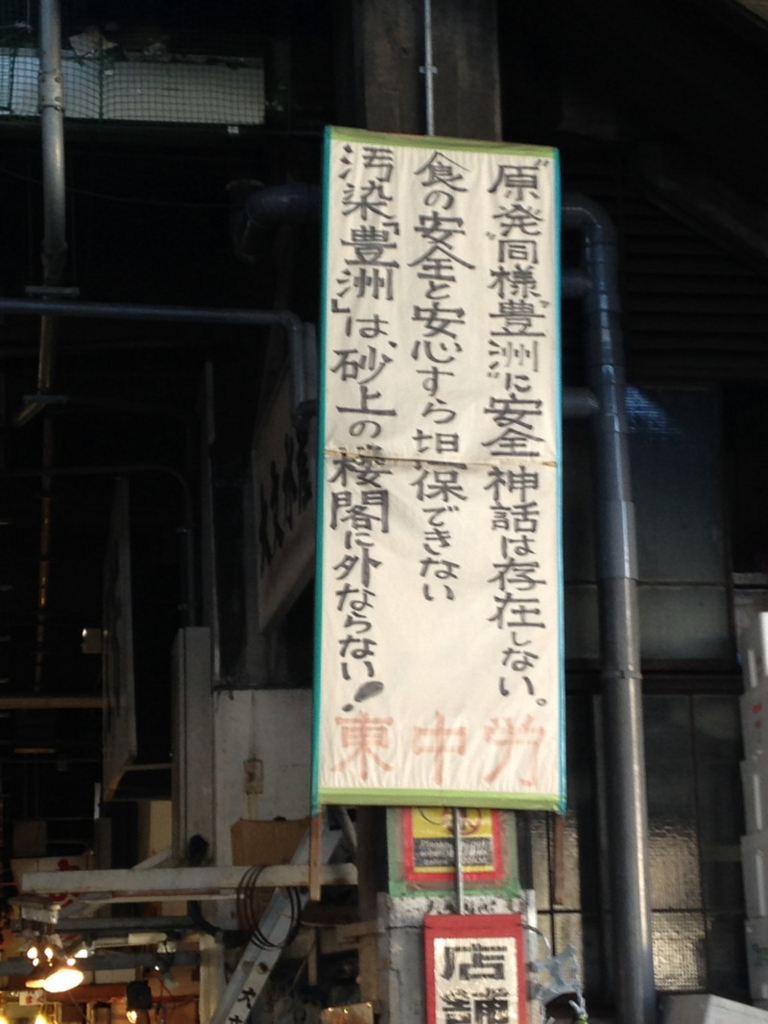 “原発”同様“豊洲”に安全神話は存在しない。
食の安全と安心すら担保できない
汚染「豊洲」は、砂上の楼閣に外ならない!
東中労
店舗